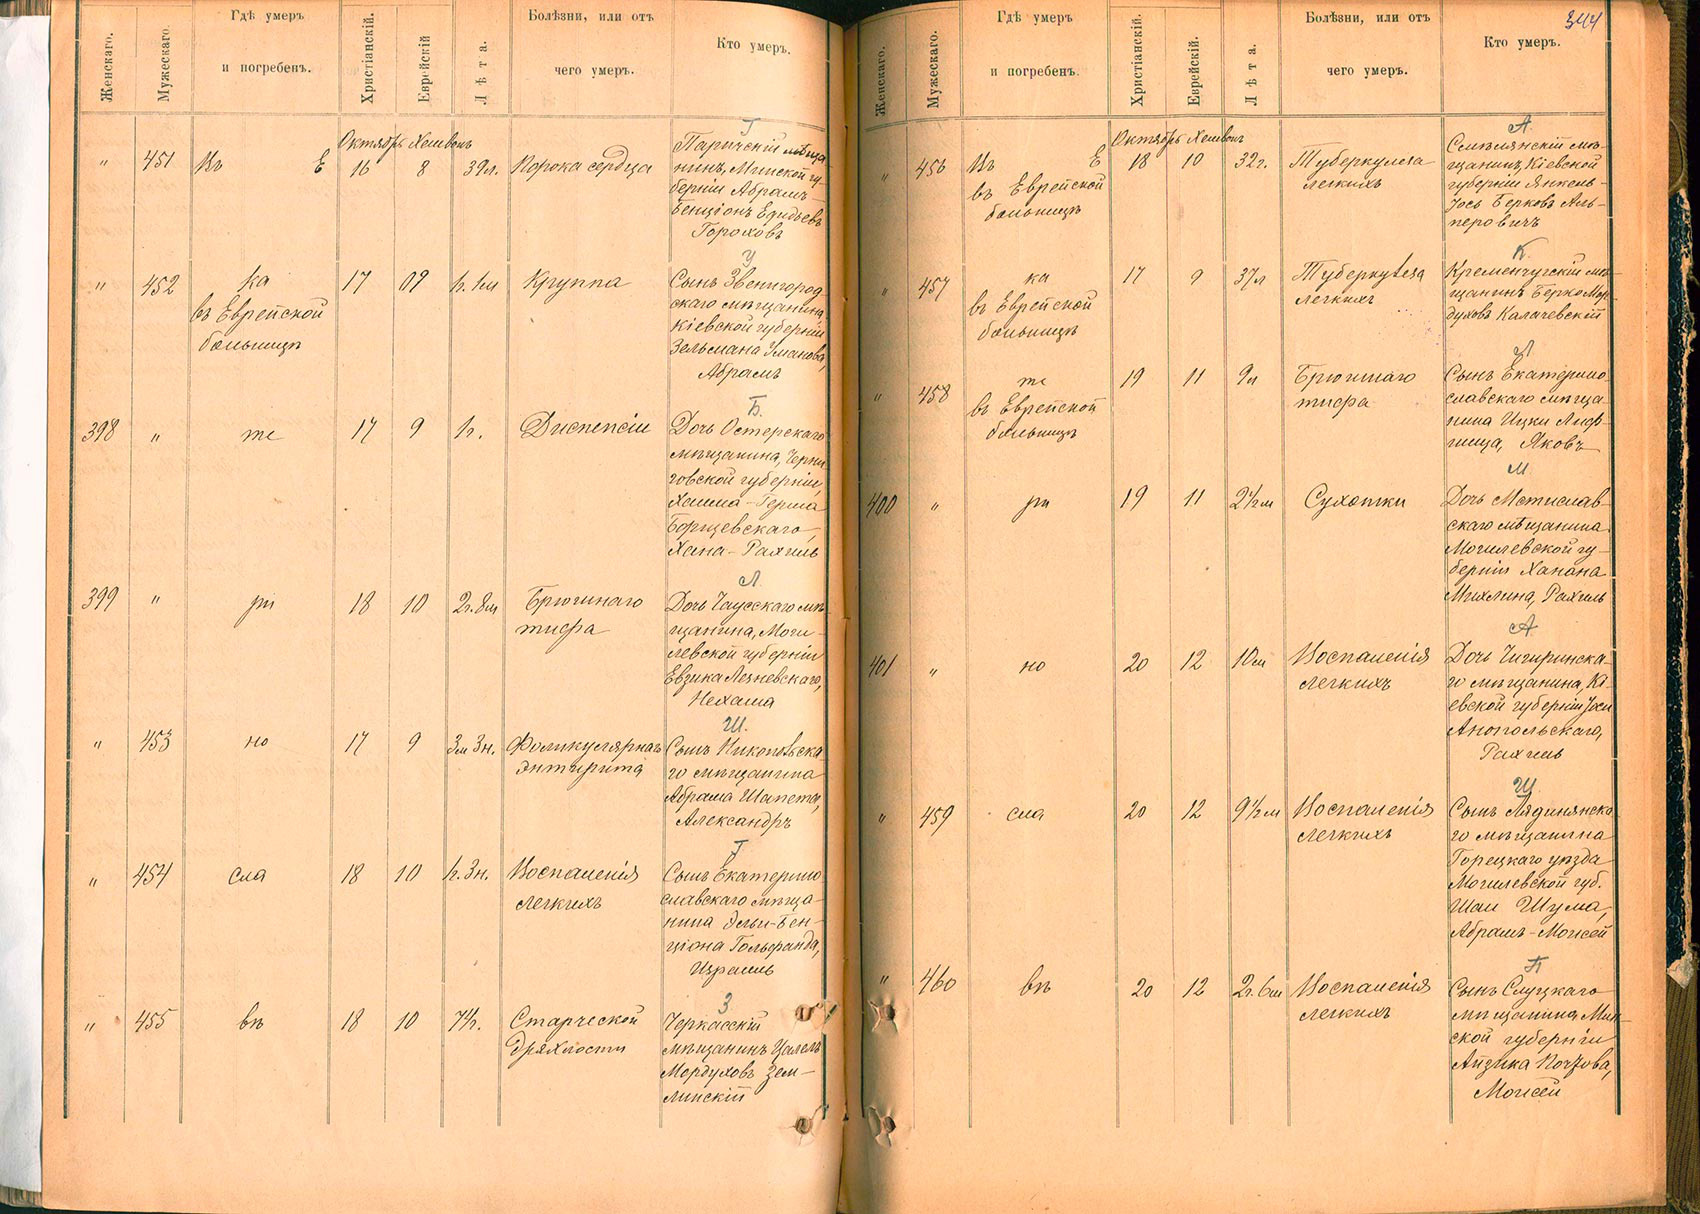 Женскаго.
Мужескаго.
Гдѣ умеръ
и погребенъ.
Христіанскій.
Еврейскій
Лѣта.
Болѣзни, или отъ
чего умеръ.
Кто умеръ.
Октябрь Хешвонъ
Г
" 451 Къ Е 16 8 39л. Порока сердца
Паричскій мѣща
нинъ, Минской гу-
берніи Абрамъ-
Бенціонъ
Гороховъ
У
" 452 ка 17 09 1г. 1м Круппа
въ Еврейской
больницѣ
Сынъ Звенигород
скаго мѣщанина
Кіевской губерніи
Зельмана Уманова,
Абрамъ
Б.
398 " те 17 9 1г. Диспепсіи
Дочь Остерскаго
мѣщанина, Черни
говской губерніи,
Хаима-Герша
Борщевскаго,
Хана-Рахиль
Л.
399 " ри 18 10 2г. 8м Брюшнаго
тифа
Дочь Чаусскаго мѣ
щанина, Моги-
левской губерніи
Евзика Лезневскаго,
Нехама
Ш.
" 453 но 17 9 3м 3н. Фоликулярнаго
энтирита
Сынъ Никопольска
го мѣщанина
Абрама Шапета,
Александръ
Г
" 454 сла 18 10 1г. 3н. Воспаленія
легкихъ
Сынъ Екатерино
славскаго мѣща-
нина Эльи-Бен-
ціона Гольфанда,
Израиль
З
" 455 вѣ 18 10 74г. Старческой
дряхлости
Черкасскій
мѣщанинъ Цалелъ
Мордуховъ Зем-
линскій
344
Женскаго.
Мужескаго.
Гдѣ умеръ
и погребенъ.
Христіанскій.
Еврейскій.
Лѣта.
Болѣзни, или отъ
чего умеръ.
Кто умеръ.
Октябрь Хешвонъ
А.
" 456 Къ Е 18 10 32г. Туберкулеза
легкихъ
въ Еврейской
больницѣ
Смѣлянскій мѣ-
щанинъ, Кіевской
губерніи Янкель-
Іось Берковъ Аль-
перовичъ
К.
" 457 ка 17 9 37л Туберкулеза
легкихъ
въ Еврейской
больницѣ
Кременчугскій мѣ-
щанинъ Берко Мор-
духовъ Калачевскій
Л
" 458 те 19 11 9л Брюшнаго
тифа
въ Еврейской
больницѣ
Сынъ Екатерино
славскаго мѣща
нина Ицки Лиф-
шица, Яковъ
М.
400 " ри 19 11 2½м Сухотки
Дочь Мстислав-
скаго мѣщанина
Могилевской гу-
берніи Ханана
Михлина, Рахиль
А.
401 " но 20 12 10м Воспаленія
легкихъ
Дочь Чигиринска-
го мѣщанина, Кі-
евской губерніи Іоси
Анопольскаго,
Рахиль
Ш.
" 459 сла 20 12 9½м Воспаленія
легкихъ
Сынъ Лядинянска
го мѣщанина
Горецкаго уѣзда
Могилевской губ.
Шаи Шума,
Абрамъ-Моисей
П
" 460 вѣ 20 12 2г. 6м Воспаленія
легкихъ
Сынъ Слуцкаго
мѣщанина Мин-
ской губерніи
Айзика
Моисей